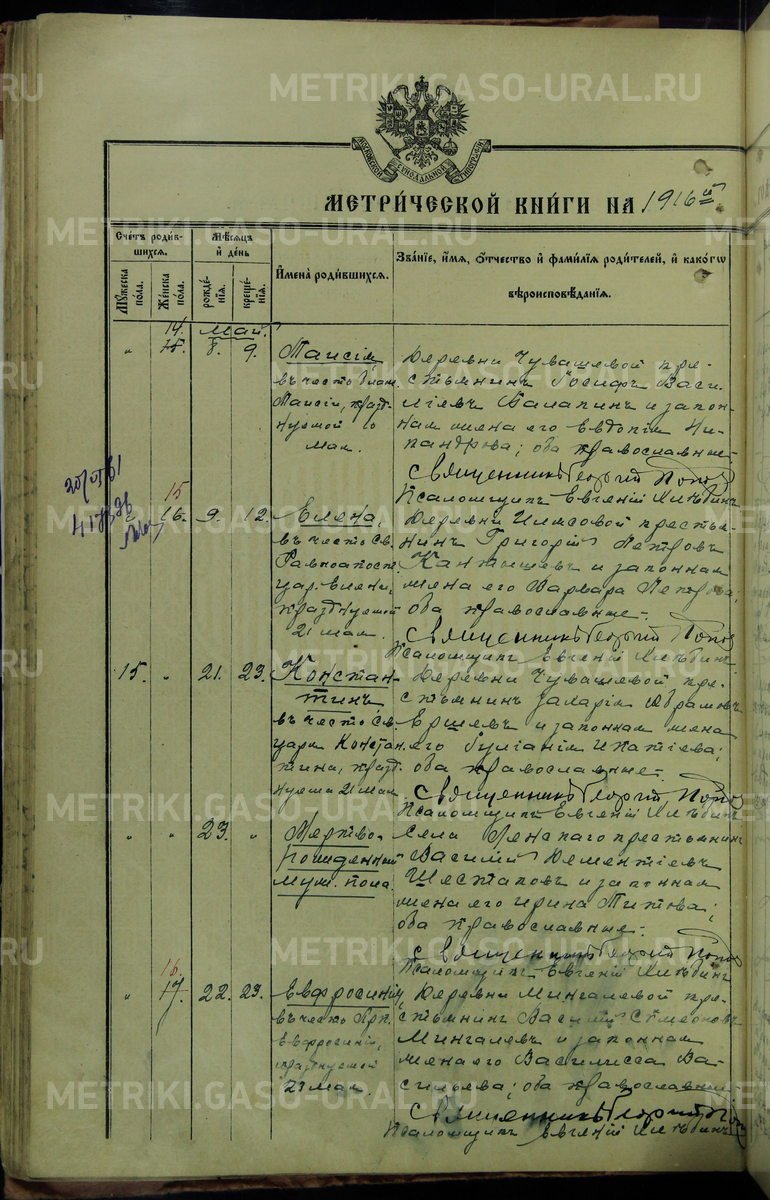 METRIKI.GASO-URAL.RU
МЕТРИ́ЧЕСКОЙ КНИ́ГИ НА 1916й
Счетъ роди́вшихся.
Мꙋжеска по́ла.
Же́нска по́ла.
Мѣ́сяцъ и҆ де́нь
рожде́нїѧ.
креще́нїѧ.
И҆мена̀ роди́вшихсѧ.
Зва́нїе, и҆́мѧ, ѻ҆́тчество и҆ фами́лїѧ роди́телей, и҆ како́гѡ вѣроисповѣ́данїѧ.
Май.
14.
15.
8.
9.
Таисія,
въ честь блаж.
Таисіи, празд-
нуемой 10
мая.
Деревни Чувашевой кре-
стьянинъ Іосифъ Васи-
ліевъ и закон-
ная жена его Евдокія Ни-
кандрова; оба православные.
Священникъ Георгій Попов
Псаломщикъ Евгеній Хлѣбинъ
15
16.
9.
12.
Елена,
въ честь Св.
Равноапост.
цар. Елены,
празднуемой
21 мая.
Деревни кресть-
нинъ Григорій Петровъ
и законная
жена его Варвара Петрова,
оба православные.
Священникъ Георгій Попов
Псаломщикъ Евгеній Хлѣбинъ
15.
21.
23.
Констан-
тинъ,
въ честь Св.
царя Констан-
тина, празд-
нуема 21 мая.
Деревни Чувашевой кре-
стьянинъ Захарія Абрамовъ
Ершевъ и законная жена
его Іуліанія Ипатіева;
оба православные.
Священникъ Георгій Попов
Псаломщикъ Евгеній Хлѣбинъ
23.
Мертво-
рожденный
муж. пола.
Села Ленскаго крестьянинъ
Василій Дементіевъ
Шестаковъ и законная
жена его Ирина Титова;
оба православные.
Священникъ Георгій Попов
Псаломщикъ Евгеній Хлѣбинъ
16.
17.
22.
23.
Евфросинія,
въ честь Прп.
Евфросиніи,
празднуемой
23 мая.
Деревни Мингалевой кре-
стьянинъ Василій Симеоновъ
Мингалевъ и законная
жена его Василисса Ва-
сильева; оба православные
Священникъ Георгій Попов
Псаломщикъ Евгеній Хлѣбинъ